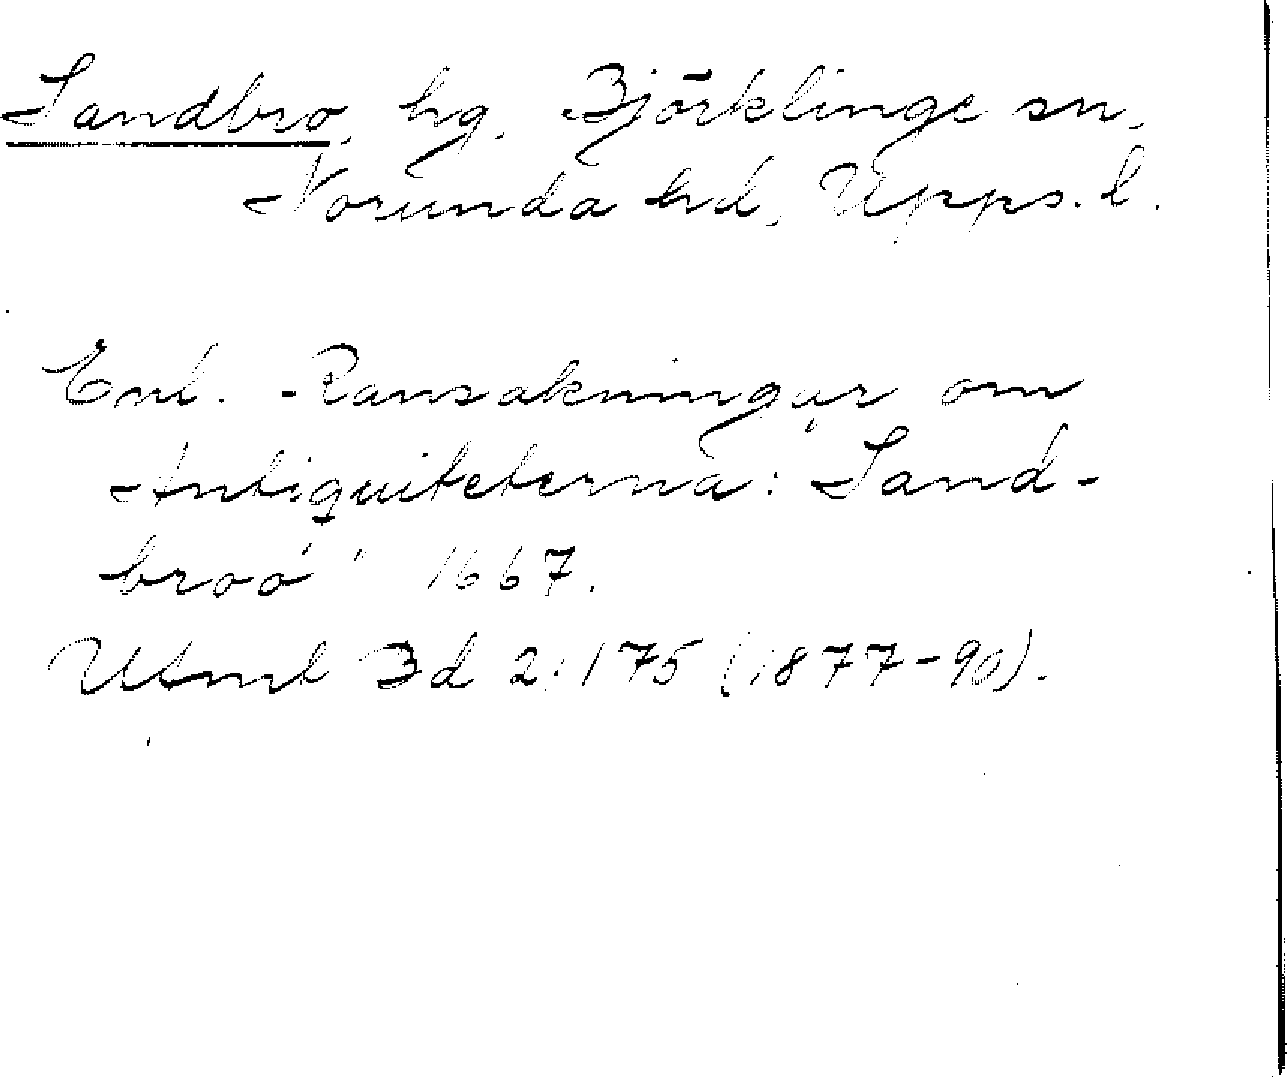 Sandbro, hg. Björklinge sn,
Norunda hd, Upps. l.
Enl. Ransakningar om
Antiquiteterna: Sand-
broo 1667.
Utml Bd 2:175 (1877-90).